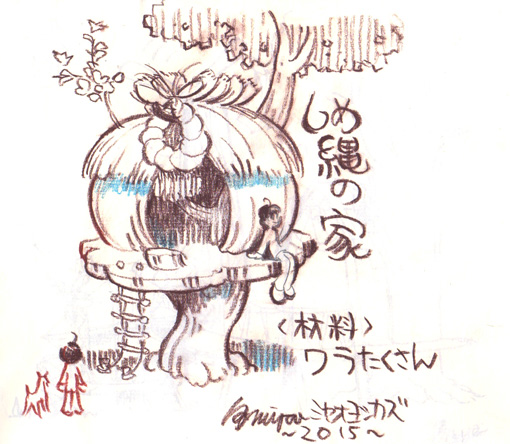 しめ縄の家
〈材料〉
ワラたくさん
ミヤオヨシカズ
～2015～